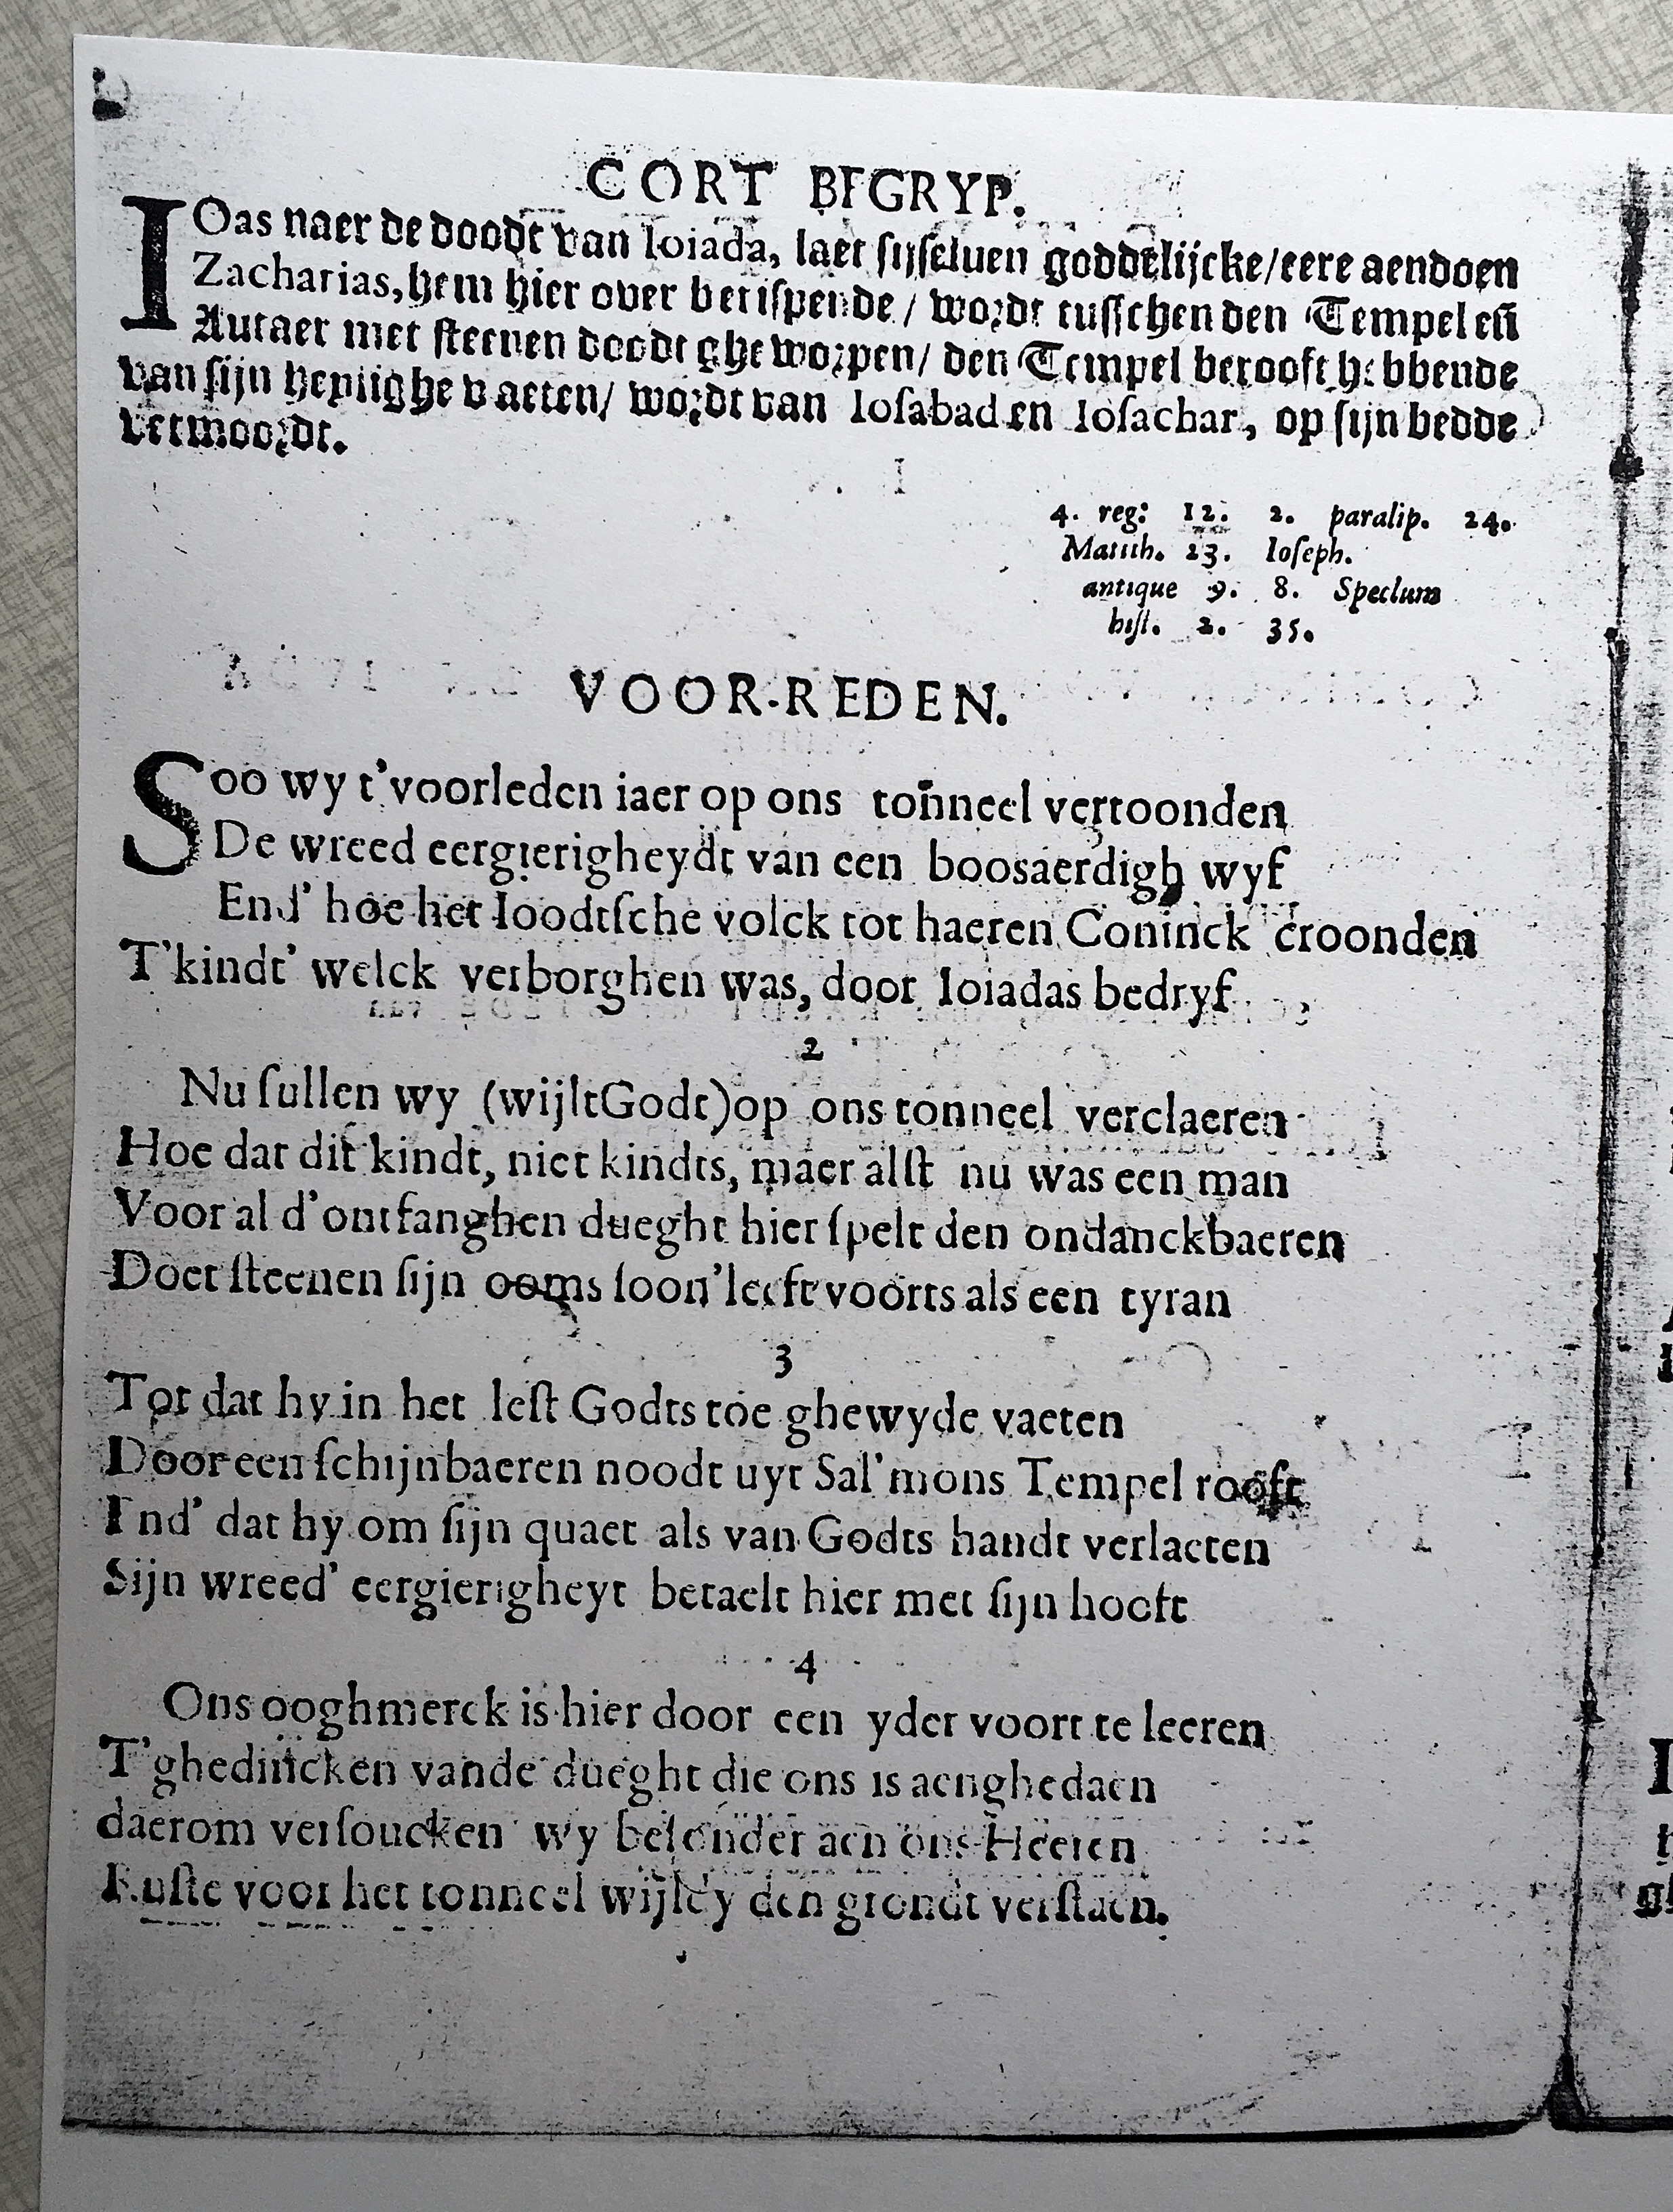 CORT BEGRYP.
IOas naer de doodt van Ioiada, laet sijseluen goddelijcke/eere aendoen
Zacharias, hem hier over berispende / wordt tusschen den Tempel eñ
Autaer met steenen doodt gheworpen/ den Tempel berooft hebbende
van sijn heylighe vaeten/ wordt van Iosabad en Iosachar, op sijn bedde
vermoordt.
4. reg: 12. 2. paralip. 24.
Matth. 23. Ioseph.
antique 9. 8. Speclum
hist. 2. 35.
VOOR-REDEN.
Soo wy t'voorleden iaer op ons tonneel vertoonden
De wreed eergierigheydt van een boosaerdigh wyf
End' hoe het Ioodtsche volck tot haeren Coninck croonden
T'kindt' welck verborghen was, door Ioiadas bedryf
2
Nu sullen wy (wijltGodt)op ons tonneel verclaeren
Hoe dat dit kindt, niet kindts, maer allt nu was een man
Voor al d'ontfanghen dueght hier spelt den ondanckbaeren
Doet steenen sijn ooms soon' leeft voorts als een tyran
3
Tot dat hy in het lest Godts toe ghewyde vaeten
Door een schijnbaeren noodt uyt Sal'mons Tempel rooft
End' dat hy om sijn quaet als van Godts handt verlaeten
Sijn wreed' eergierigheyt betaelt hier met sijn hooft
4
Ons ooghmerck is hier door een yder voort te leeren
T'ghedincken vande dueght die ons is aenghedaen
daerom versoucken wy besonder aen ons Heeren
Ruste voor het tonneel wijlt'y den grondt verstaen.